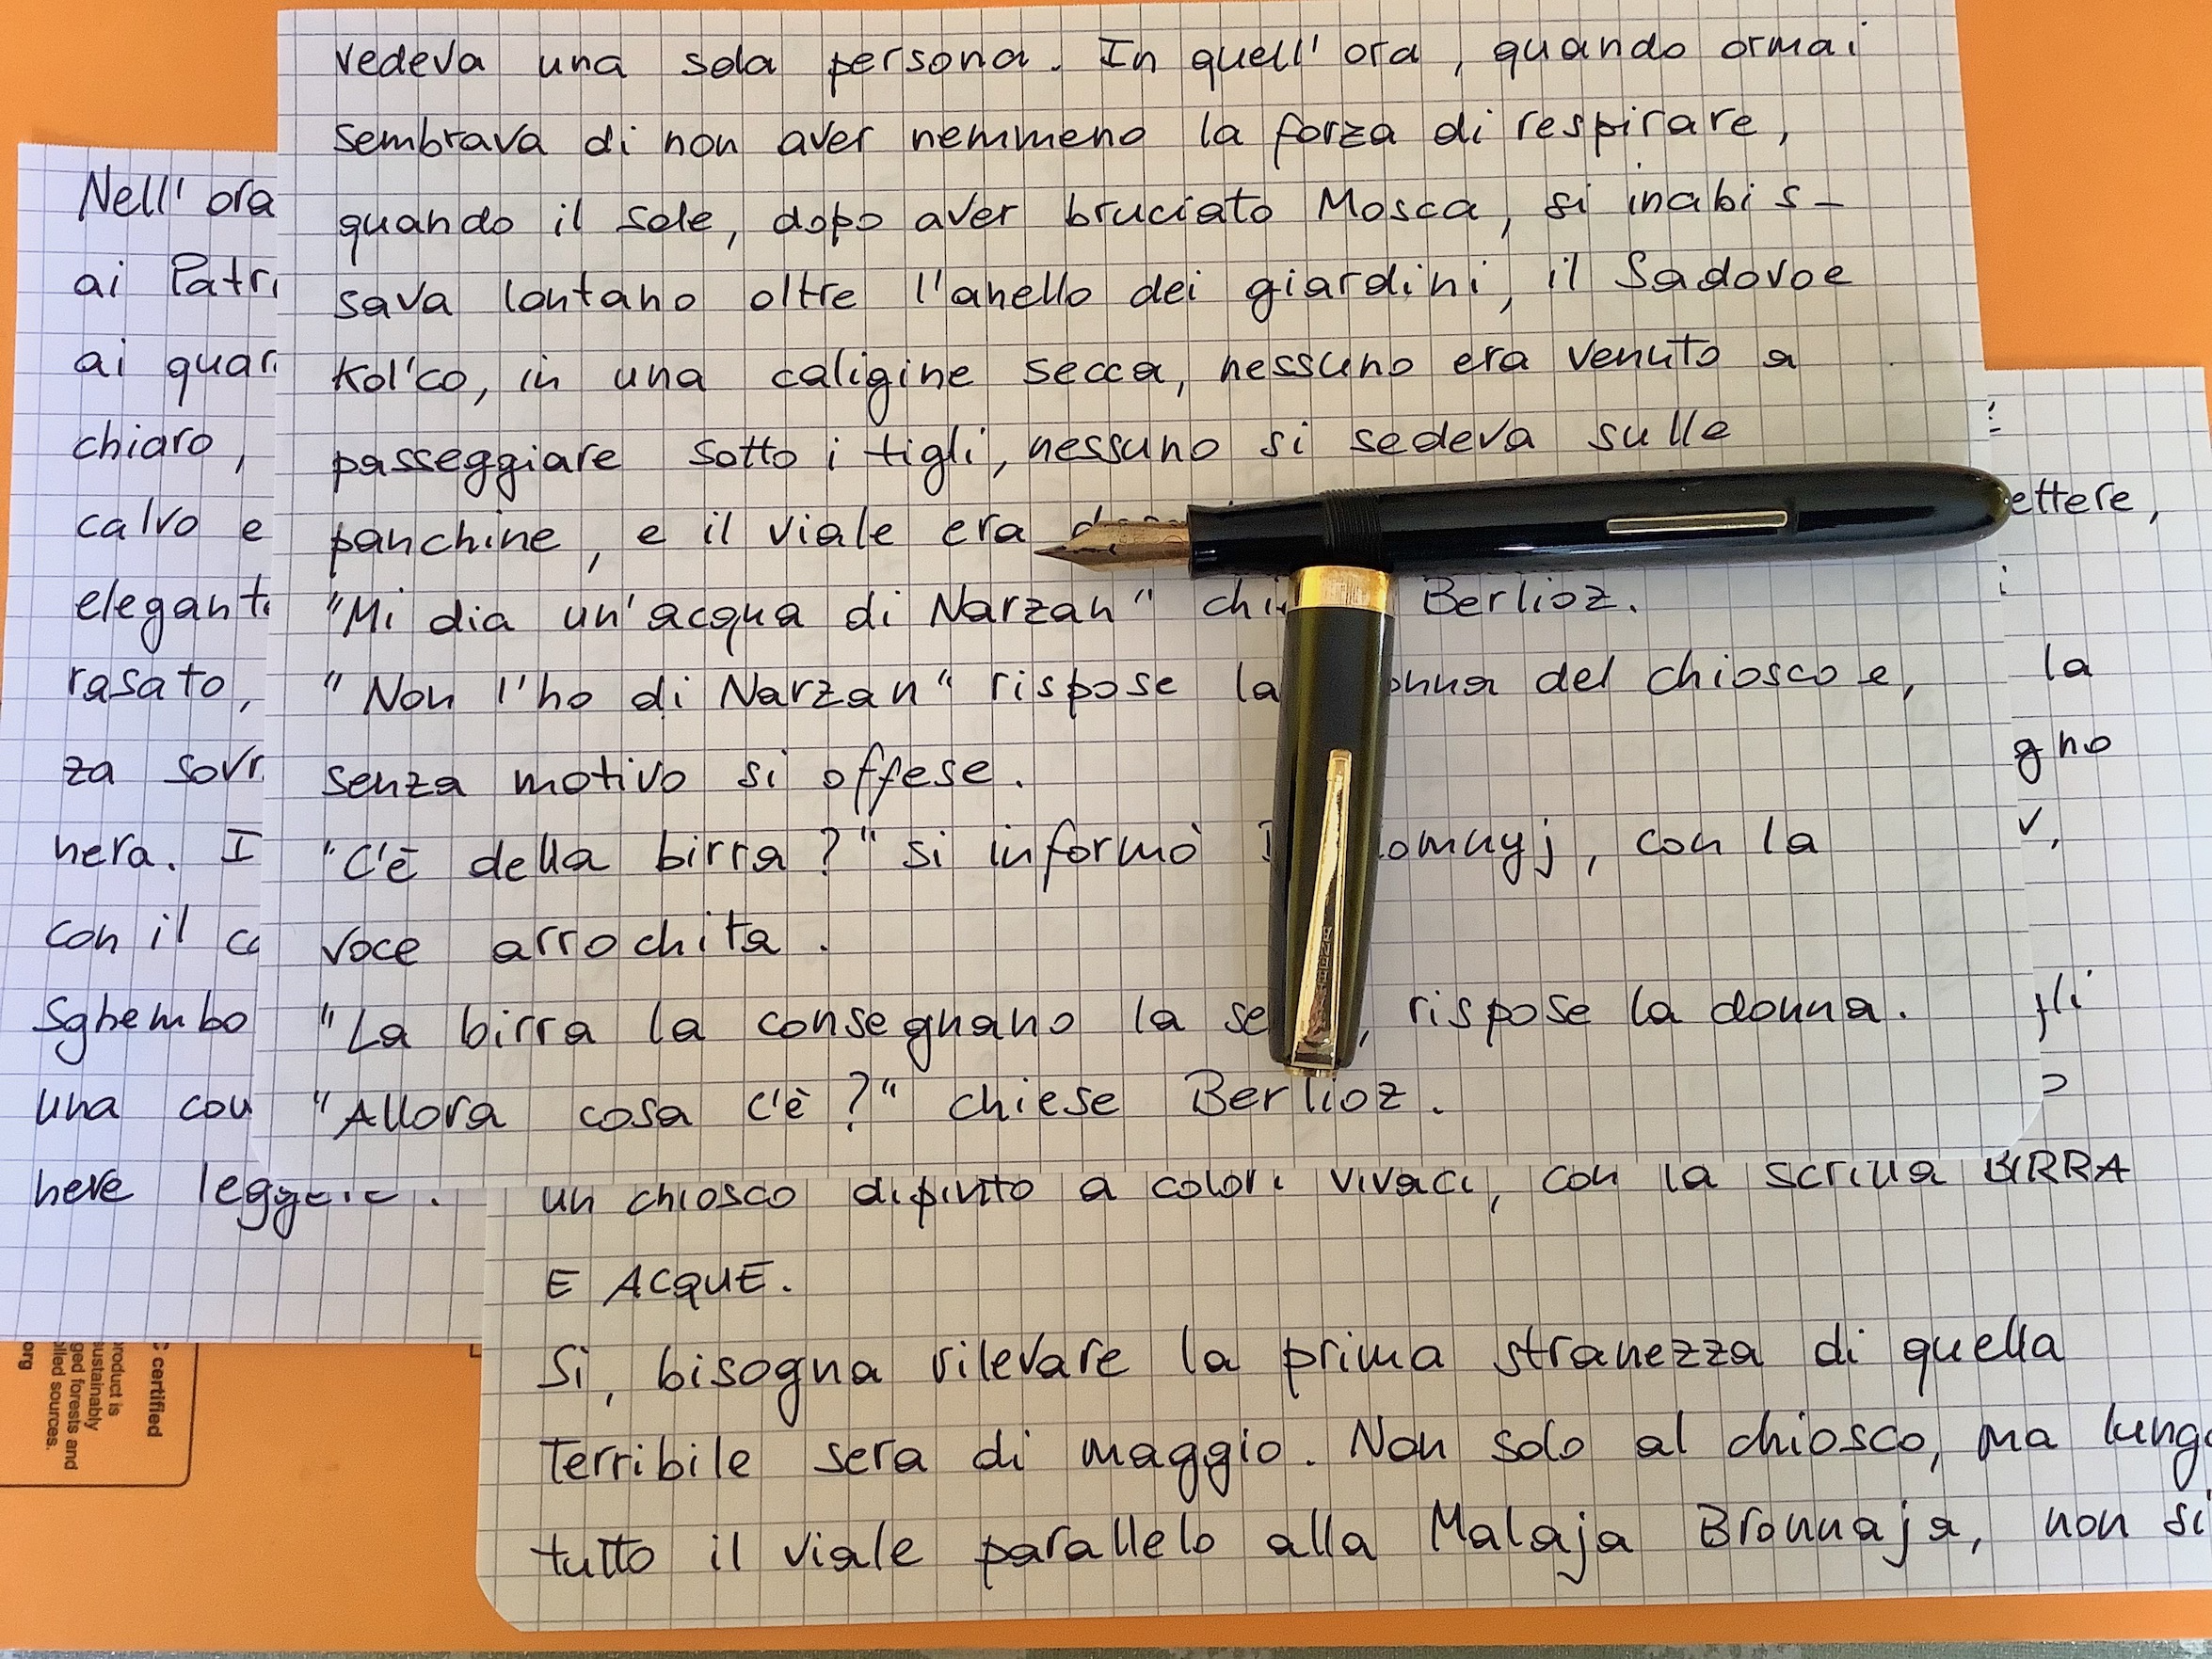 vedeva una sola persona. In quell'ora, quando ormai
sembrava di non aver nemmeno la forza di respirare,
quando il sole, dopo aver bruciato Mosca, si inabis-
sava lontano oltre l'anello dei giardini, il Sadovoe
Kol'co, in una caligine secca, nessuno era venuto a
passeggiare sotto i tigli, nessuno si sedeva sulle
panchine, e il viale era
"Mi dia un'acqua di Narzan" Berlioz.
"Non l'ho di Narzan" rispose la del chiosco e,
senza motivo si offese.
"C'è della birra?" si informò con la
voce arrochita.
"La birra la consegnano la rispose la donna.
"Allora cosa c'è?" chiese Berlioz.
Nell'ora
ai
ai
chiaro,
calvo e
rasato,
za
nera. I
con il
Sghembo
una
nere
ettere,
la
gno
v,
un chiosco dipinto a colori vivaci, con la scritta BIRRA
E ACQUE.
Si, bisogna rilevare la prima stranezza di quella
terribile sera di maggio. Non solo al chiosco, ma lungo
tutto il viale parallelo alla Malaja Bronnaja, non si
certified
product is
ustainably
ged forests and
lled sources.
org